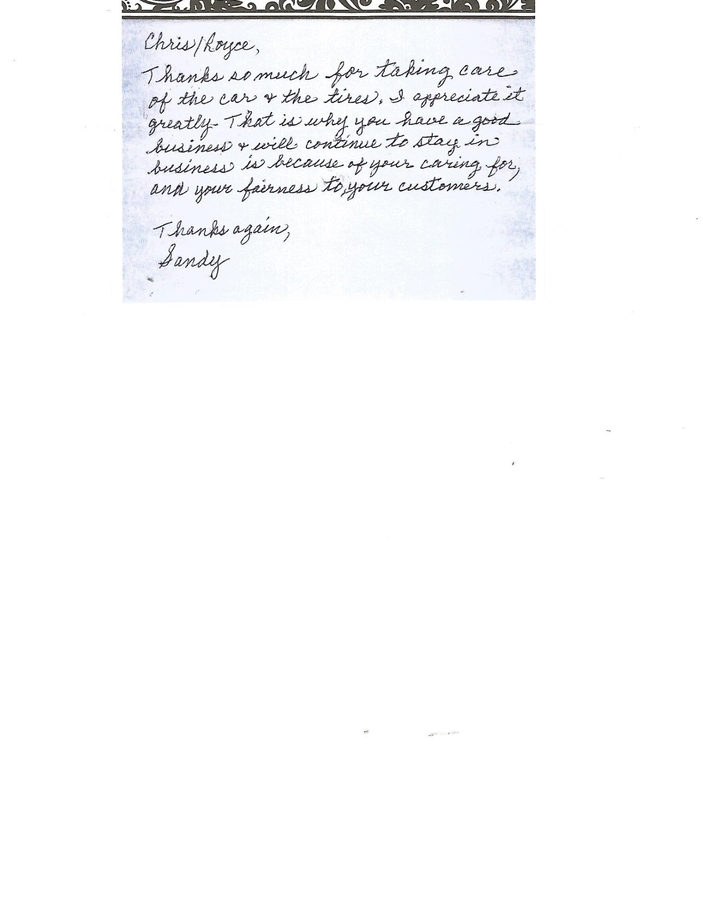 Chris/Royce,
Thanks so much for taking care
of the car & the tires. I appreciate it
greatly. That is why you have a good
business & will continue to stay in
business is because of your caring for,
and your fairness to, your customers.
Thanks again,
Sandy